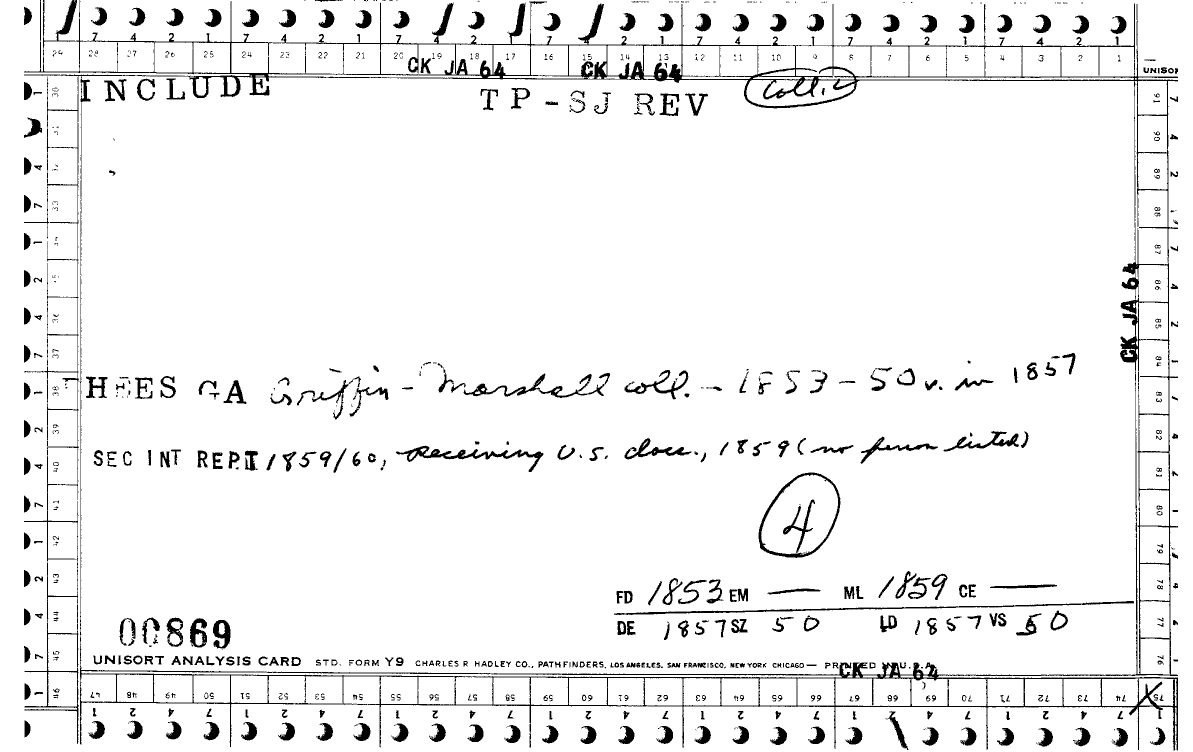 7 4 2 1 7 4 2 1 7 4 2 1 7 4 2 1 7 4 2 1 7 4 2 1 7 4 2 1
29 28 27 26 25 24 23 22 21 20 19 18 17 16 15 14 13 12 11 10 9 8 7 6 5 4 3 2 1
CK JA 64 CK JA 64
UNISOR
INCLUDE TP-SJ REV Coll.
CK JA 64
HEES GA Griffin - Marshall coll. - 1853 - 50 v. in 1857
SEC INT REPT 1859/60, receiving U.S. docs., 1859 (no person listed)
4
FD 1853 EM — ML 1859 CE —
DE 1857 SZ 50 LD 1857 VS 50
00869
UNISORT ANALYSIS CARD STD. FORM Y9 CHARLES R HADLEY CO., PATHFINDERS, LOS ANGELES, SAN FRANCISCO, NEW YORK CHICAGO — PRINTED IN U.S.A.
CK JA 64
46 47 48 49 50 51 52 53 54 55 56 57 58 59 60 61 62 63 64 65 66 67 68 69 70 71 72 73 74 75